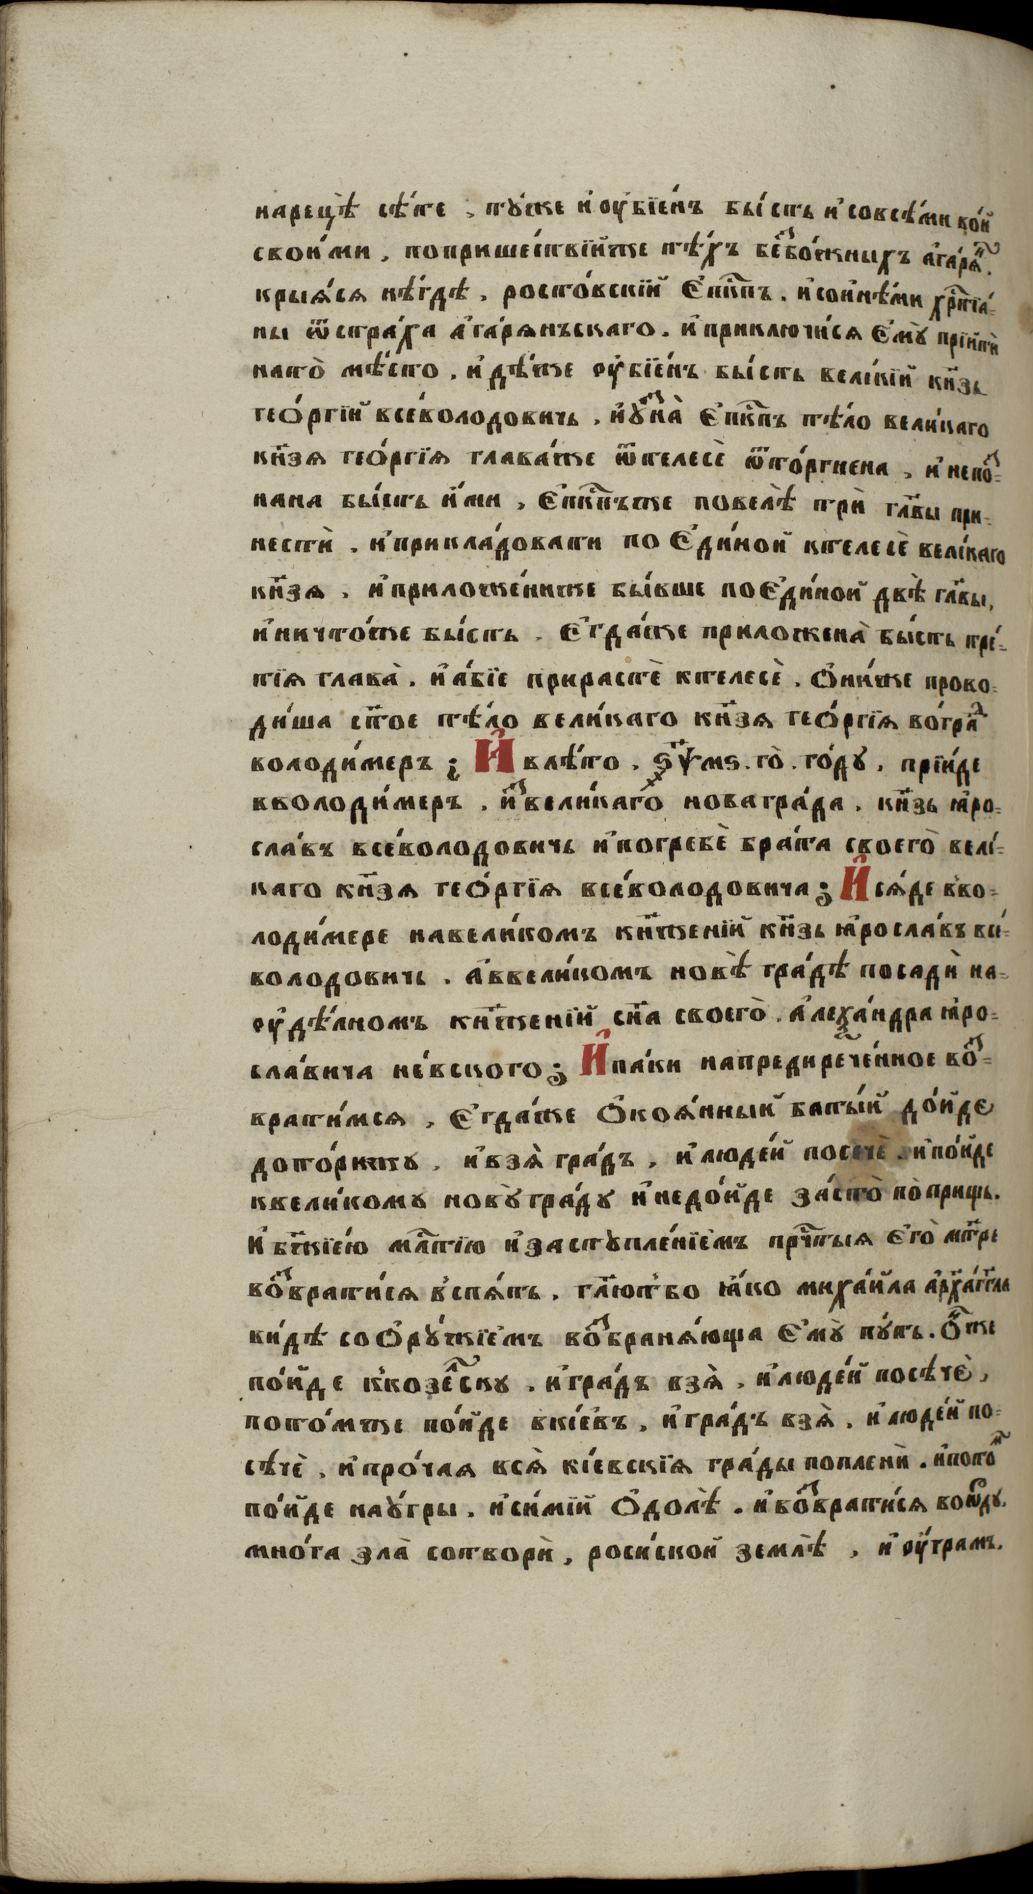 нарецѣ̀ сѣ́те , ту́же и҆ оу҆бїе́нъ бы́сть и҆ совсѣ́ми во́и
свои́ми , попришествїи́же тѣ́хъ бе҇збо́жныхъ а҆гарѧ̑.
крыѧ́сѧ нѣ́гдѣ , росто́вскїй Е҆пк҃пъ . и҆ сои҆нѣ́ми хр҃тїа́-
ны ѿстра́ха а҆га́рѧнъскаго . и҆ приключи́сѧ Е҆мꙋ̀ прїитѝ
нато̀ мѣ́сто , и҆дѣ́же оу҆бїе́нъ бы́сть вели́кїй кн҃зь
гео́ргїй все́володовичь , и҆ у҆зна̀ Е҆пк҃пъ тѣ́ло вели́каго
кн҃зѧ гео́ргїѧ глава́же ѿтелесѐ ѿто́ргнена , и҆ непоз-
нана бы́сть и҆́ми , Е҆пк҃пъже повелѣ̀ трѝ гл҃вы при-
нестѝ . и҆ прикла́довати по Е҆ди́ной ктелесѐ вели́каго
кн҃зѧ , и҆ приложе́ниже бы́вше по Е҆ди́ной двѣ̀ гл҃вы,
и҆ ничто́же бы́сть . Е҆гда́же приложена̀ бы́сть тре́-
тїѧ глава̀ . и҆ а҆́бїе прирастѐ ктелесѐ . О҆ни́же прово-
ди́ша ст҃ое тѣ́ло вели́каго кн҃зѧ гео́ргїѧ во́градⷣ
володи́меръ ; И҆ влѣ́то . ҂ѕѱмѕ . го̀ . го́дꙋ , прїи́де
вволоди́меръ . и҆зⷥвели́каго новагра́да . кн҃зь ꙗ҆ро-
сла́въ все́володовичь и҆ погребѐ бра́та своего̀ вели́-
каго кн҃зѧ гео́ргїѧ все́володовича ; И҆ сѧ́де вво-
лоди́мере навели́комъ кн҃же́нїй кн҃зь ꙗ҆росла́въ все́-
володовичь . а҆ ввели́комъ новѣ̀ гра́дѣ посадѝ на-
оу҆дѣ́лномъ кн҃же́нїй сн҃а своего̀ . а҆леѯа́ндра ꙗ҆ро-
сла́вича не́вского ; И҆ па́ки напредирече́нное воз-
врати́мсѧ , Е҆гда́же О҆коѧ́нный баты́й до́йде
доторжкꙋ , и҆ взѧ̀ гра́дъ , и҆ люде́й посечѐ . и҆ по́йде
квели́комꙋ новꙋ̀градꙋ и҆ недо́йде за́сто̀ по̀прищь.
И҆ бж҃їею мл҃тїю и҆ застꙋпле́нїемъ прч҃тыѧ Е҆го̀ мт҃ре
возврати́сѧ вспѧ́ть . гл҃ютбо ꙗ҆́ко миха́йла а҆рха́гг҃ла
ви́дѣ соО҆рꙋ́жїемъ возбранѧ́юща Е҆мꙋ̀ пꙋ́ть . О҆н҃же
по́йде ккозе́лскꙋ . и҆ гра́дъ взѧ̀ , и҆ люде́й посѣчѐ,
пото́мже по́йде вкі́евъ , и҆ гра́дъ взѧ̀ , и҆ люде́й по-
сѣчѐ , и҆ про́чаѧ всѧ̀ кі́евскїѧ гра́ды поплени̇̀ . и҆ потоⷨ
по́йде наꙋ́гры . и҆ си́мїй О҆долѣ̀ . и҆ возврати́сѧ воѻⷬдꙋ.
мно́га зла̀ сотворѝ , роси́ской землѣ̀ , и҆ оу҆́грамъ.